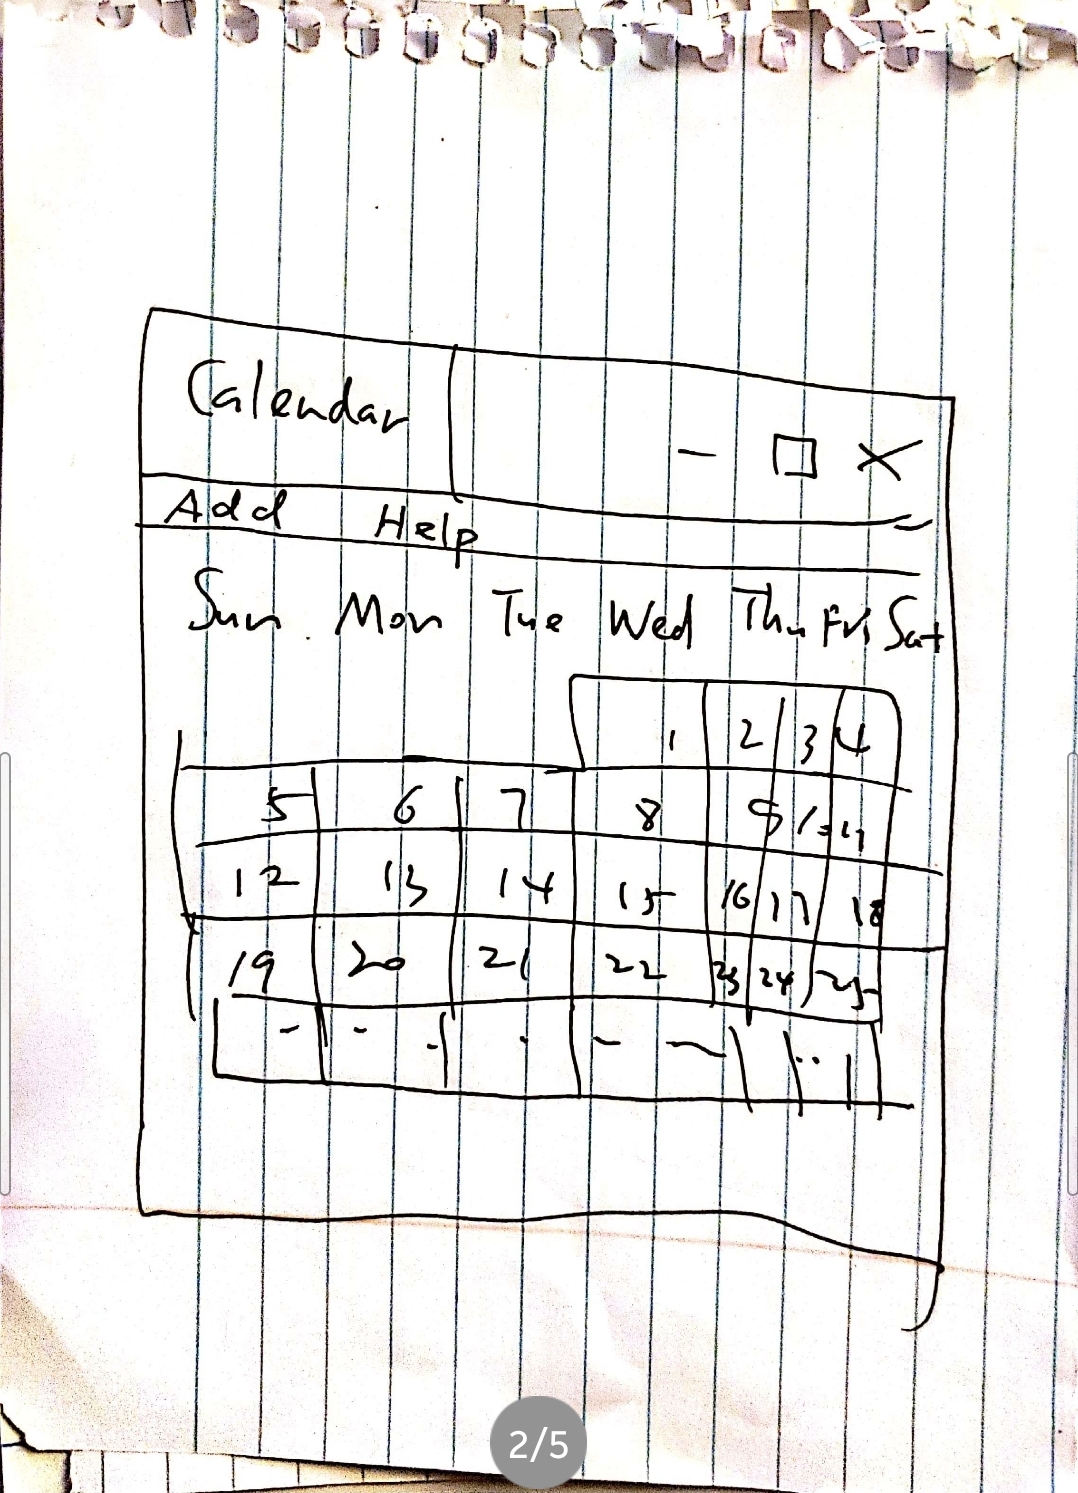 Calendar
- □ ×
Add Help
Sun Mon Tue Wed Thu Fri Sat
1 2 3 4
5 6 7 8 9 10 11
12 13 14 15 16 17 18
19 20 21 22 23 24 25
2/5